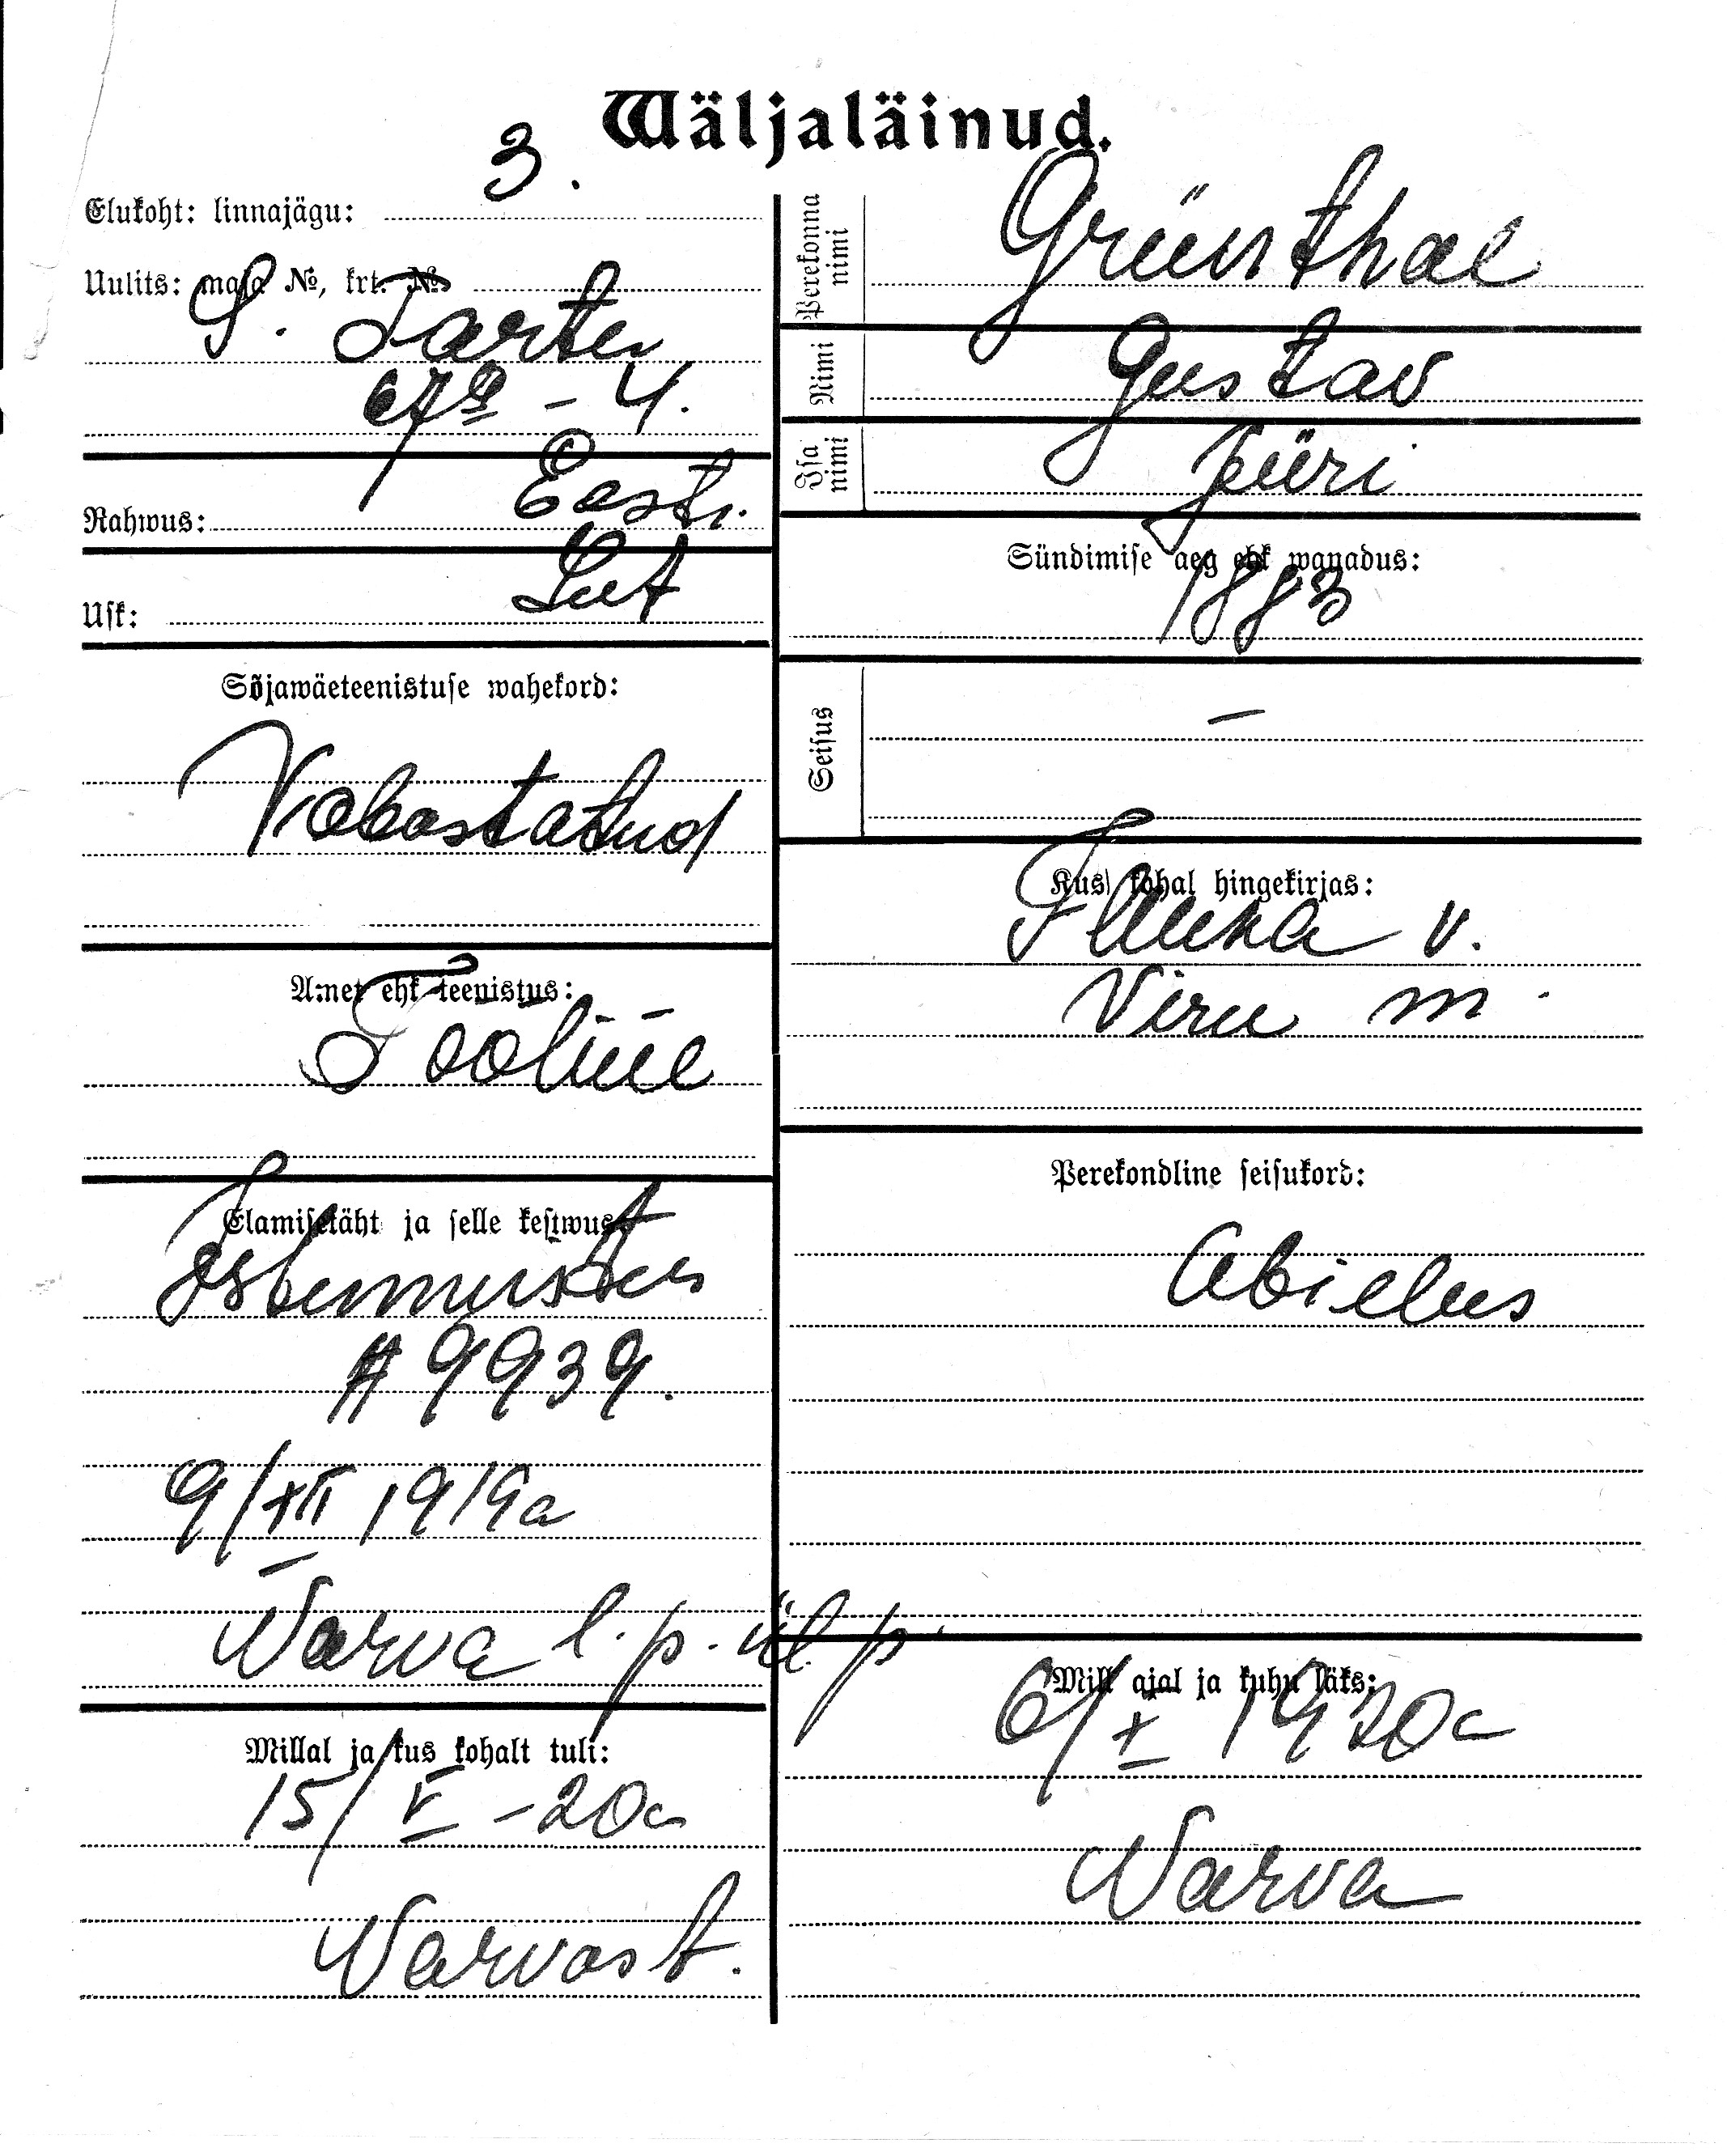 Wäljaläinud.
Elukoht: linnajägu: 3.
Uulits: maja №, krt. №
S. Tartu
67ª - 4.
Rahwus: Eesti.
Usk: Lut
Sõjawäeteenistuse wahekord:
Vabastatud
Amet ehk teenistus:
Tööline
Elamisetäht ja selle kestwus:
Isetunnistus
# 9939.
9/XII 1919a
Narva l. p. ül. p.
Millal ja kus kohalt tuli:
15/V - 20a
Narvast.
Perekonna nimi Grünthal
Nimi Gustav
Isa nimi Jüri
Sündimise aeg ehk wanadus:
1883
Seisus —
Kus kohal hingekirjas:
v.
Viru m.
Perekondline seisukord:
Abielus
Mill ajal ja kuhu läks:
6/X 1920a
Narva